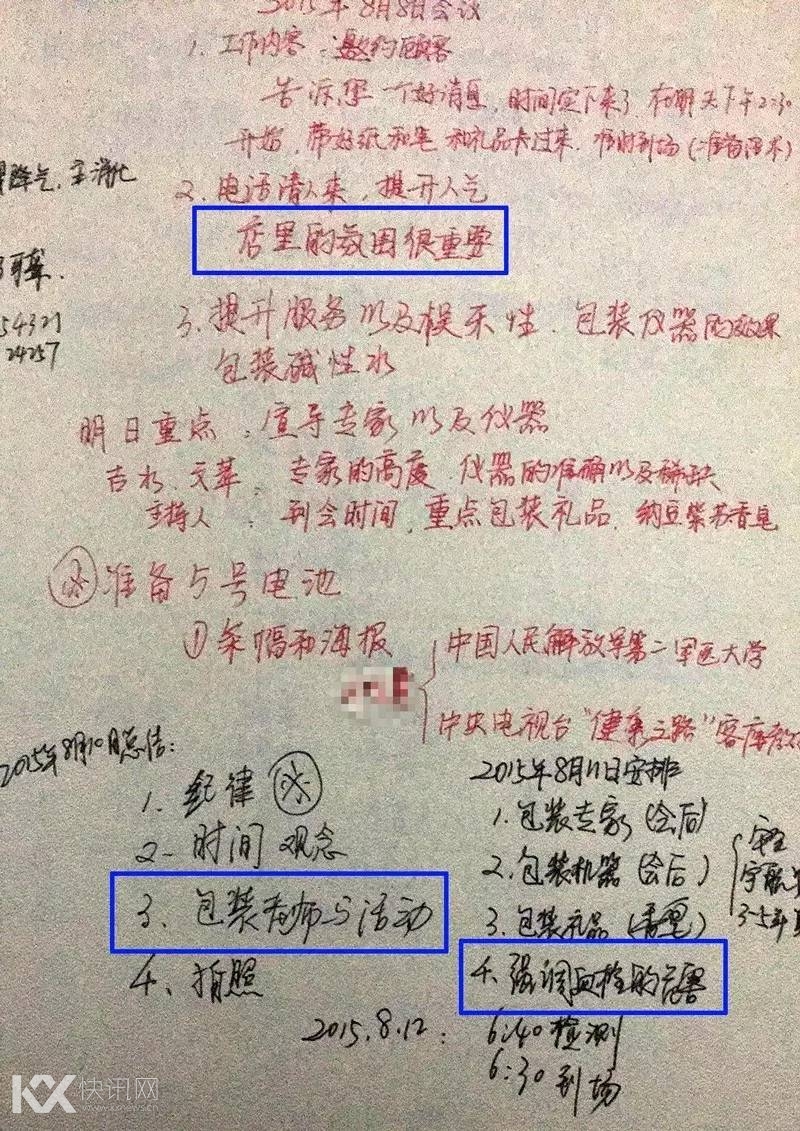 2015年8月8日会议
1. 工作内容：邀约顾客
告诉您一个好消息，时间定下来了，在明天下午2:30
开始，带好纸和笔和礼品卡过来，准时到场（
降气，主消化
2. 电话请人来，提升人气
店里的氛围很重要
54321
24257
3. 提升服务以及娱乐性、包装仪器的效果
包装碱性水
明日重点：宣导专家以及仪器
吉水、文萃：专家的高度、仪器的准确以及稀缺
主持人：到会时间，重点包装礼品、纳豆紫苏香皂
准备5号电池
①条幅和海报
中国人民解放军第二军医大学
中央电视台“健康之路”客座教
2015年8月10日总结：
1. 纪律
2- 时间观念
3、包装老师与活动
4、拍照
2015年8月11日安排
1. 包装专家（会后）
2. 包装机器（会后）
3. 包装礼品（香皂）
4、强调血栓的危害
安全
3-5年
2015.8.12：
6:40检测
6:30到场
KX 快讯网
www.kxnews.cn